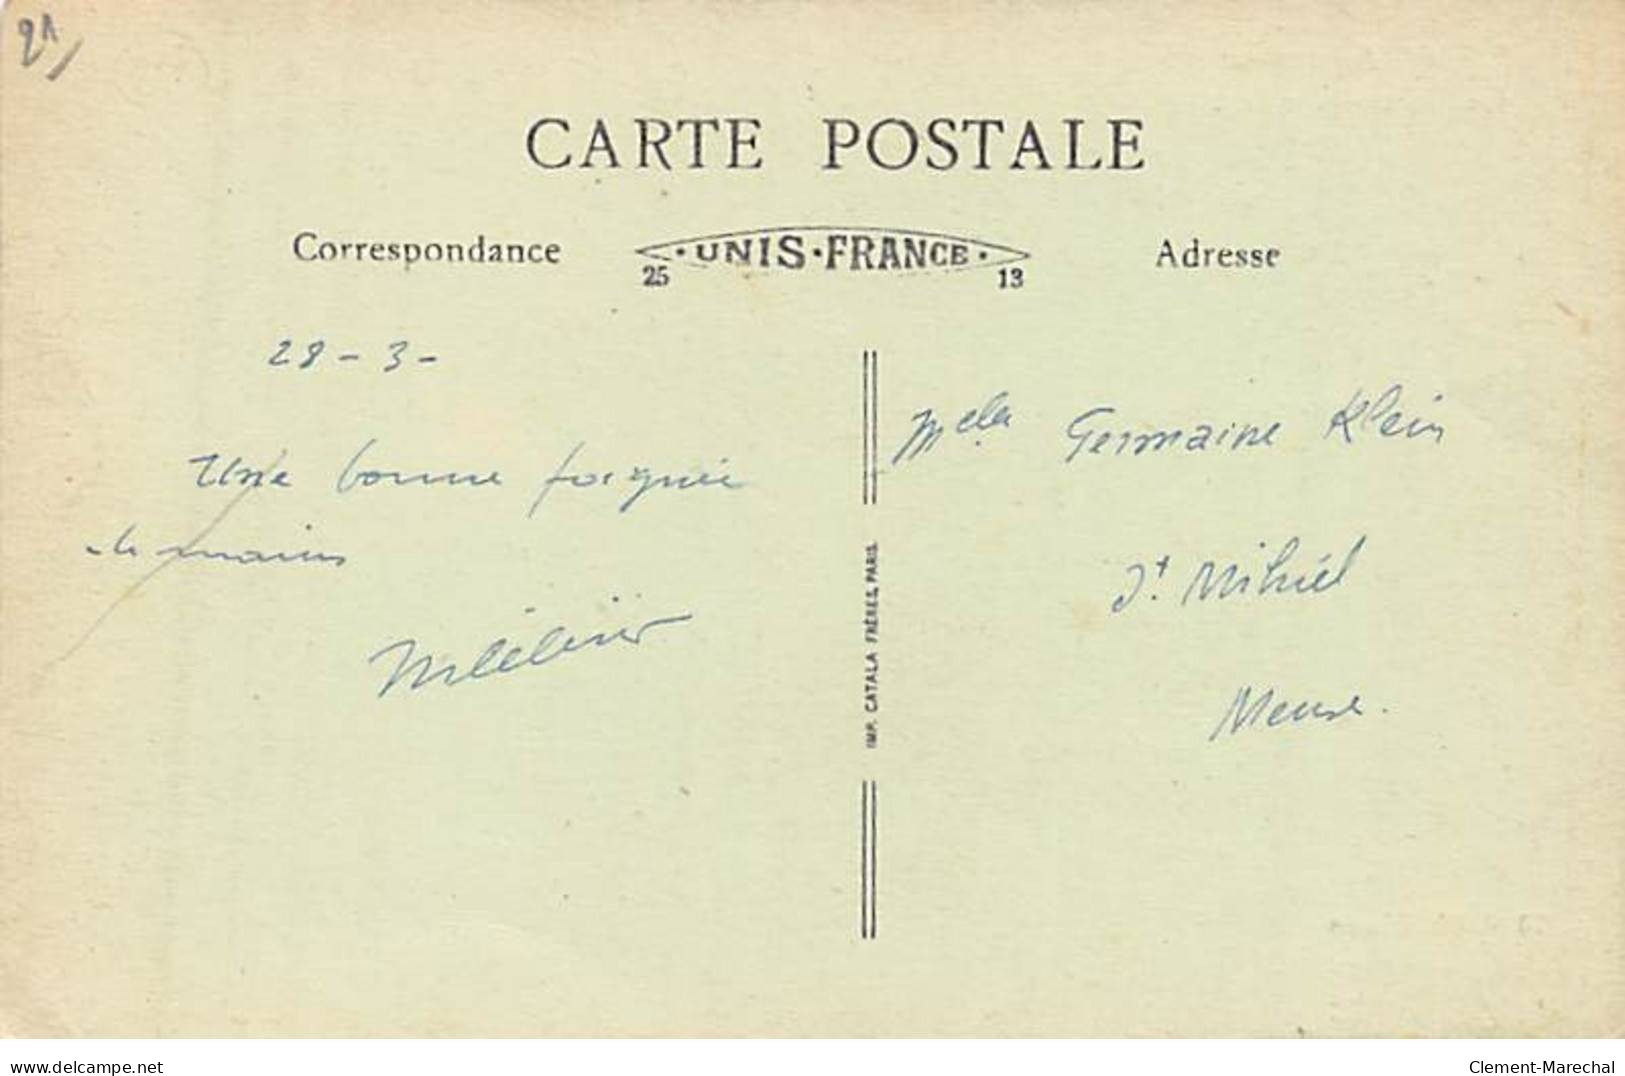 21
CARTE POSTALE
Correspondance
· UNIS · FRANCE ·
25 13
Adresse
28 - 3 -
Une bonne poignée
de mains
IMP. CATALA FRÈRES, PARIS.
Melle Germaine Klein
St. Mihiel
Meuse.
delcampe.net
Clement-Marechal